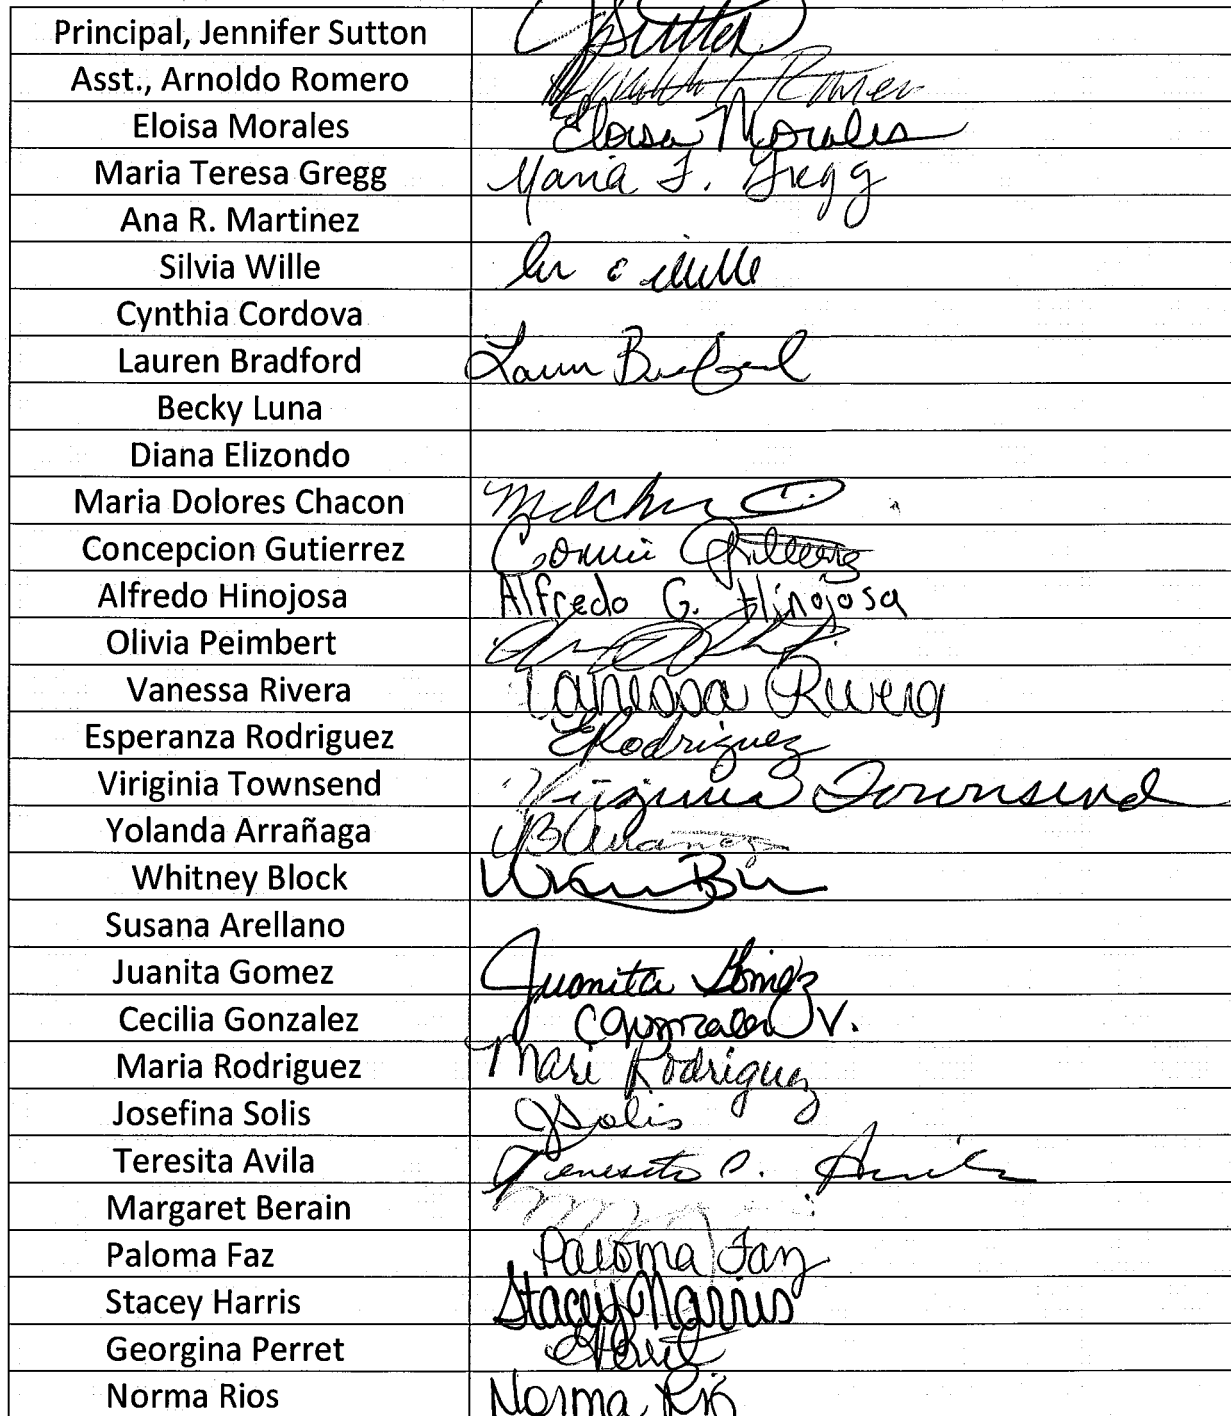 Principal, Jennifer Sutton JSutton
Asst., Arnoldo Romero Romero
Eloisa Morales Eloisa Morales
Maria Teresa Gregg Maria T. Gregg
Ana R. Martinez
Silvia Wille
Cynthia Cordova
Lauren Bradford Lauren Bradford
Becky Luna
Diana Elizondo
Maria Dolores Chacon
Concepcion Gutierrez Connie Gutierrez
Alfredo Hinojosa Alfredo G. Hinojosa
Olivia Peimbert
Vanessa Rivera Vanessa Rivera
Esperanza Rodriguez ERodriguez
Viriginia Townsend Virginia Townsend
Yolanda Arrañaga
Whitney Block
Susana Arellano
Juanita Gomez Juanita Gomez
Cecilia Gonzalez CGonzalez V.
Maria Rodriguez Mari Rodriguez
Josefina Solis JSolis
Teresita Avila Teresita A. Avila
Margaret Berain
Paloma Faz Paloma Faz
Stacey Harris Stacey Harris
Georgina Perret
Norma Rios Norma Rios